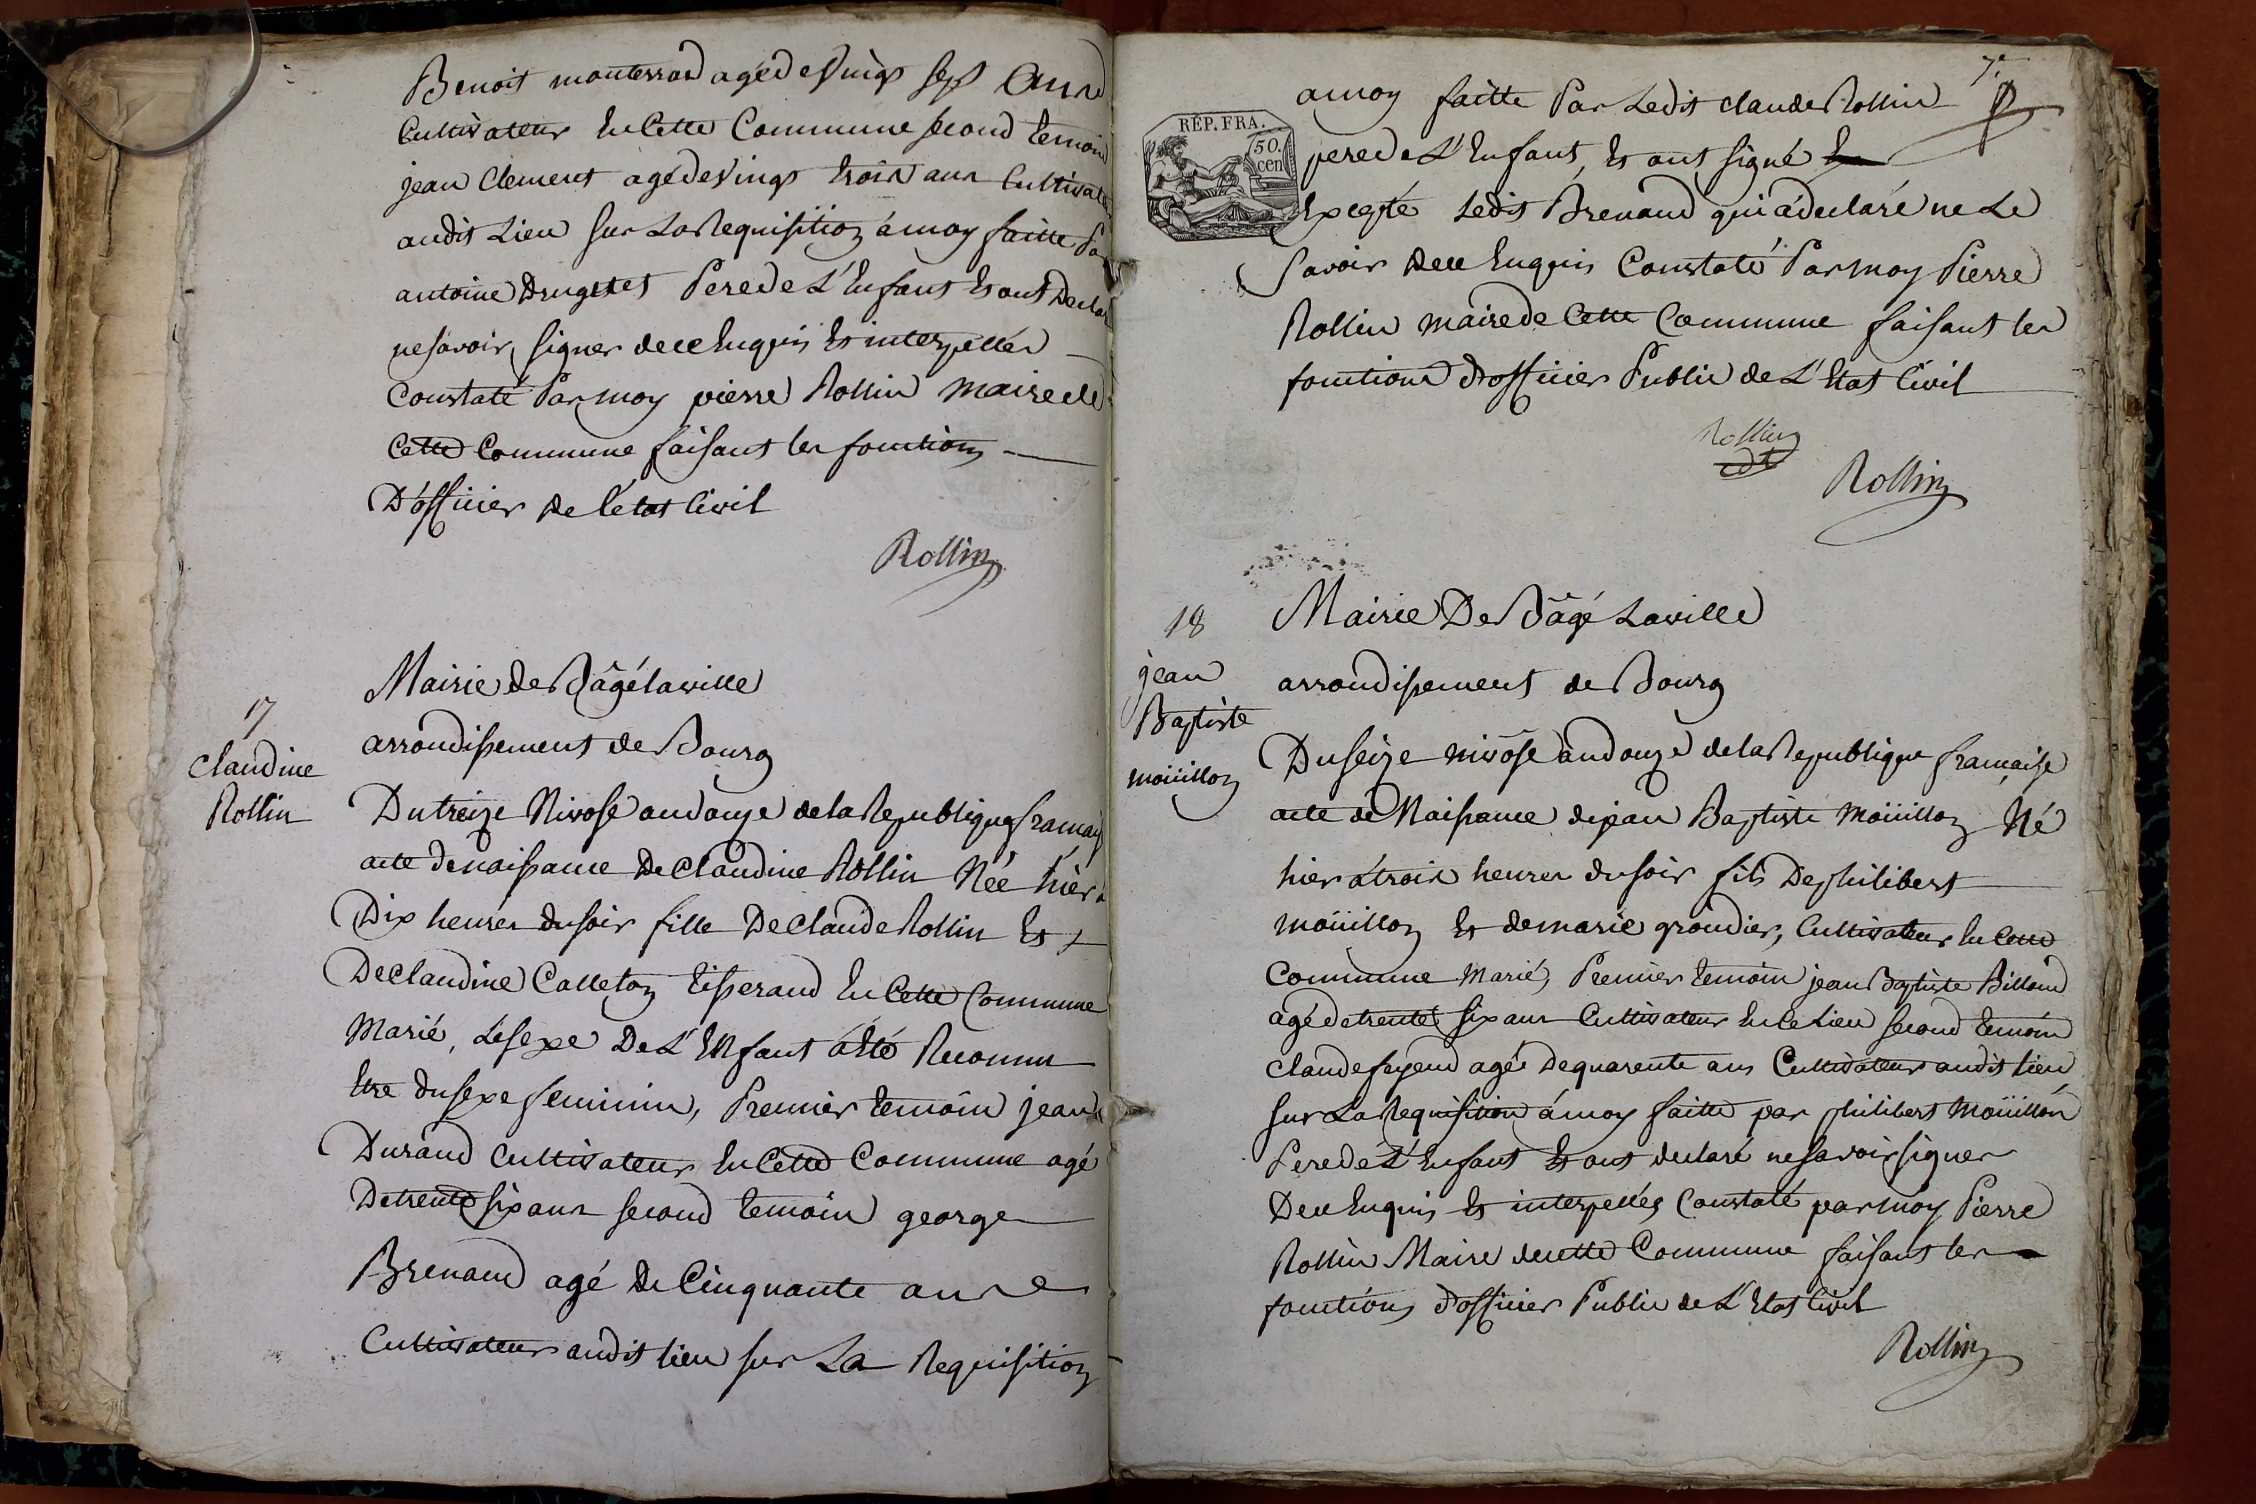 Benoit monterrad agé de Vingt sept Anns
Cultivateur En Cette Commune second temoin
jean Clement agé de Vingt trois ans Cultivate
audit Lieu sur La Requisition á moy faitte Pa
antoine Drugetet Pere de L'Enfant Et ont Declar
ne savoir signer de ce Enquis Et interpellés
Constaté Par moy pierre Rollin Maire de
Cette Commune faisant les fonctions
D'officier de l'état Civil
Rollin
17
Claudine
Rollin
Mairie de Bâgé laville
arrondissement de Bourg
Du treize Nivose an douze de la Republique francais
acte de naissance De Claudine Rollin Née hièr a
Dix heures du soir fille De Claude Rollin Et
De Claudine Calleton tisserand En Cette Commune
Marié, Le sexe De L'Enfant á été Reconnu
Etre du sexe feminin, Premier temoin jean
Durand Cultivateur En Cette Commune agé
De trente six ans second temoin george
Brenaud agé De Cinquante ans
Cultivateur audit lieu sur La Requisition
7e
amoy faitte Par Ledit claude Rollin
RÉP. FRA.
50.
cen
pere de L'Enfant, Et ont signé
Excepté Ledit Brenaud qui á declaré ne Le
Savoir De ce Enquis Constaté Par moy Pierre
Rollin maire de Cette Commune faisant les
fonctions d'officier Public de L'Etat Civil
Rollin
Rollin
18
jean
Baptiste
moüillon
Mairie De Bâgé Laville
arrondissement de Bourg
Du seize nivôse an douze de la Republique française
acte de Naissance de jean Baptiste Moüillon Né
hier á trois heures du soir fils De philibert
moüillon Et de marie grondier, Cultivateur En Cette
Commune Marié, Premier temoin jean Baptiste Billoud
agé de trente six ans Cultivateur En Ce Lieu second temoin
Claude feyeud agé De quarente ans Cultivateur audit lieu
sur La Requisition á moy faitte par philibert Moüillon
Pere de L'Enfant Et ont declaré ne savoir signer
De ce Enquis Et interpellés Constaté par moy Pierre
Rollin Maire de cette Commune faisant les
fonctions d'officier Public de L'Etat Civil
Rollin